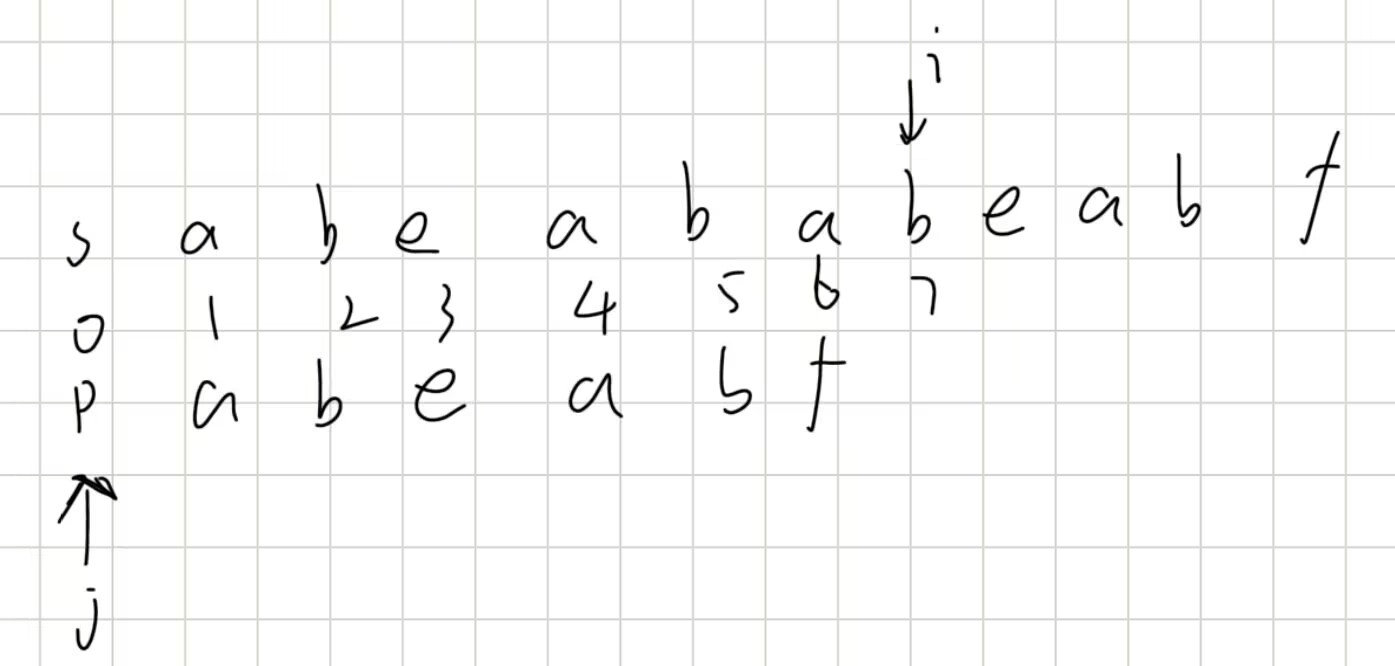 i
s a b e a b a b e a b f
0 1 2 3 4 5 6 7
p a b e a b f
j